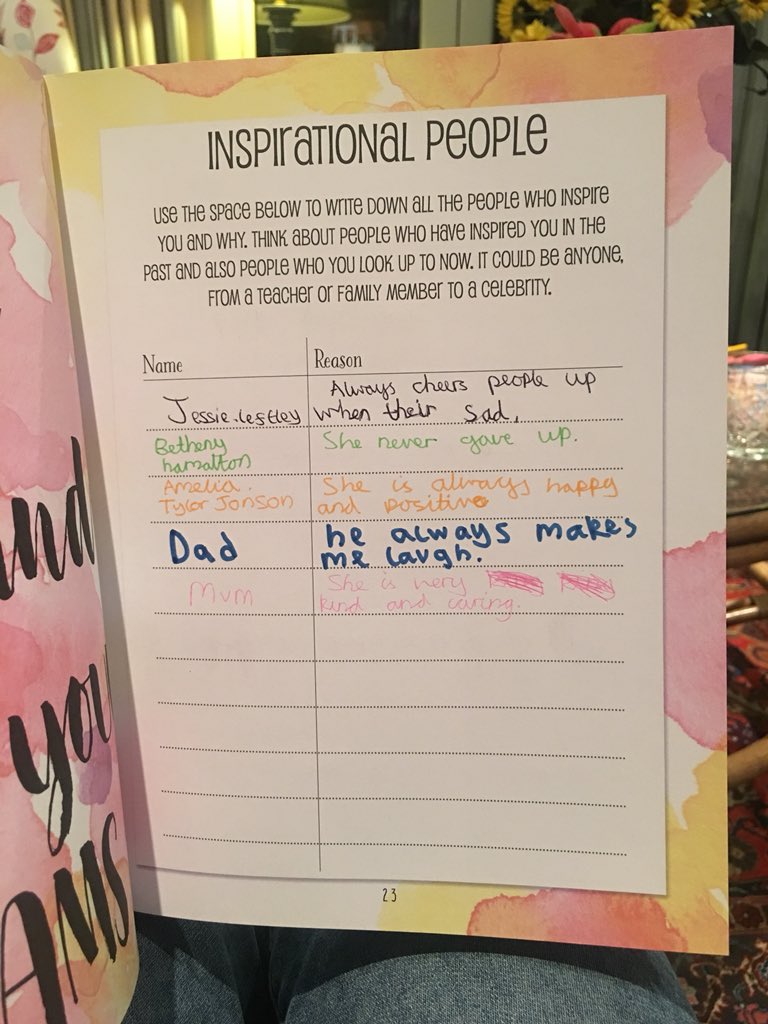 INSPIRATIONAL PEOPLE
USE THE SPACE BELOW TO WRITE DOWN ALL THE PEOPLE WHO INSPIRE
YOU AND WHY. THINK ABOUT PEOPLE WHO HAVE INSPIRED YOU IN THE
PAST AND ALSO PEOPLE WHO YOU LOOK UP TO NOW. IT COULD BE ANYONE,
FROM A TEACHER OR FAMILY MEMBER TO A CELEBRITY.
Name Reason
Always cheers people up
Jessie when their sad.
Betheny She never gave up.
hamalton
Amelia. She is always happy
Tylor Jonson and positive
Dad he always makes
me laugh.
Mum She is very
kind and caring.
23
you
AMS